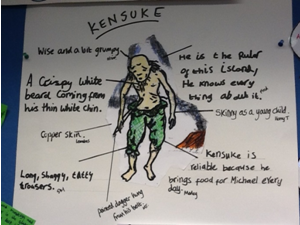 KENSUKE
Wise and a bit grumpy
A Crispy White
beard Coming from
his thin white chin.
Copper skin.
Long, Shaggy, tatty
trousers.
pointed dagger hung
from his belt
He is the Ruler
of this island,
He knows every
thing about it.
Skinny as a young child.
Kensuke is
reliable because he
brings food for Michael every
day.